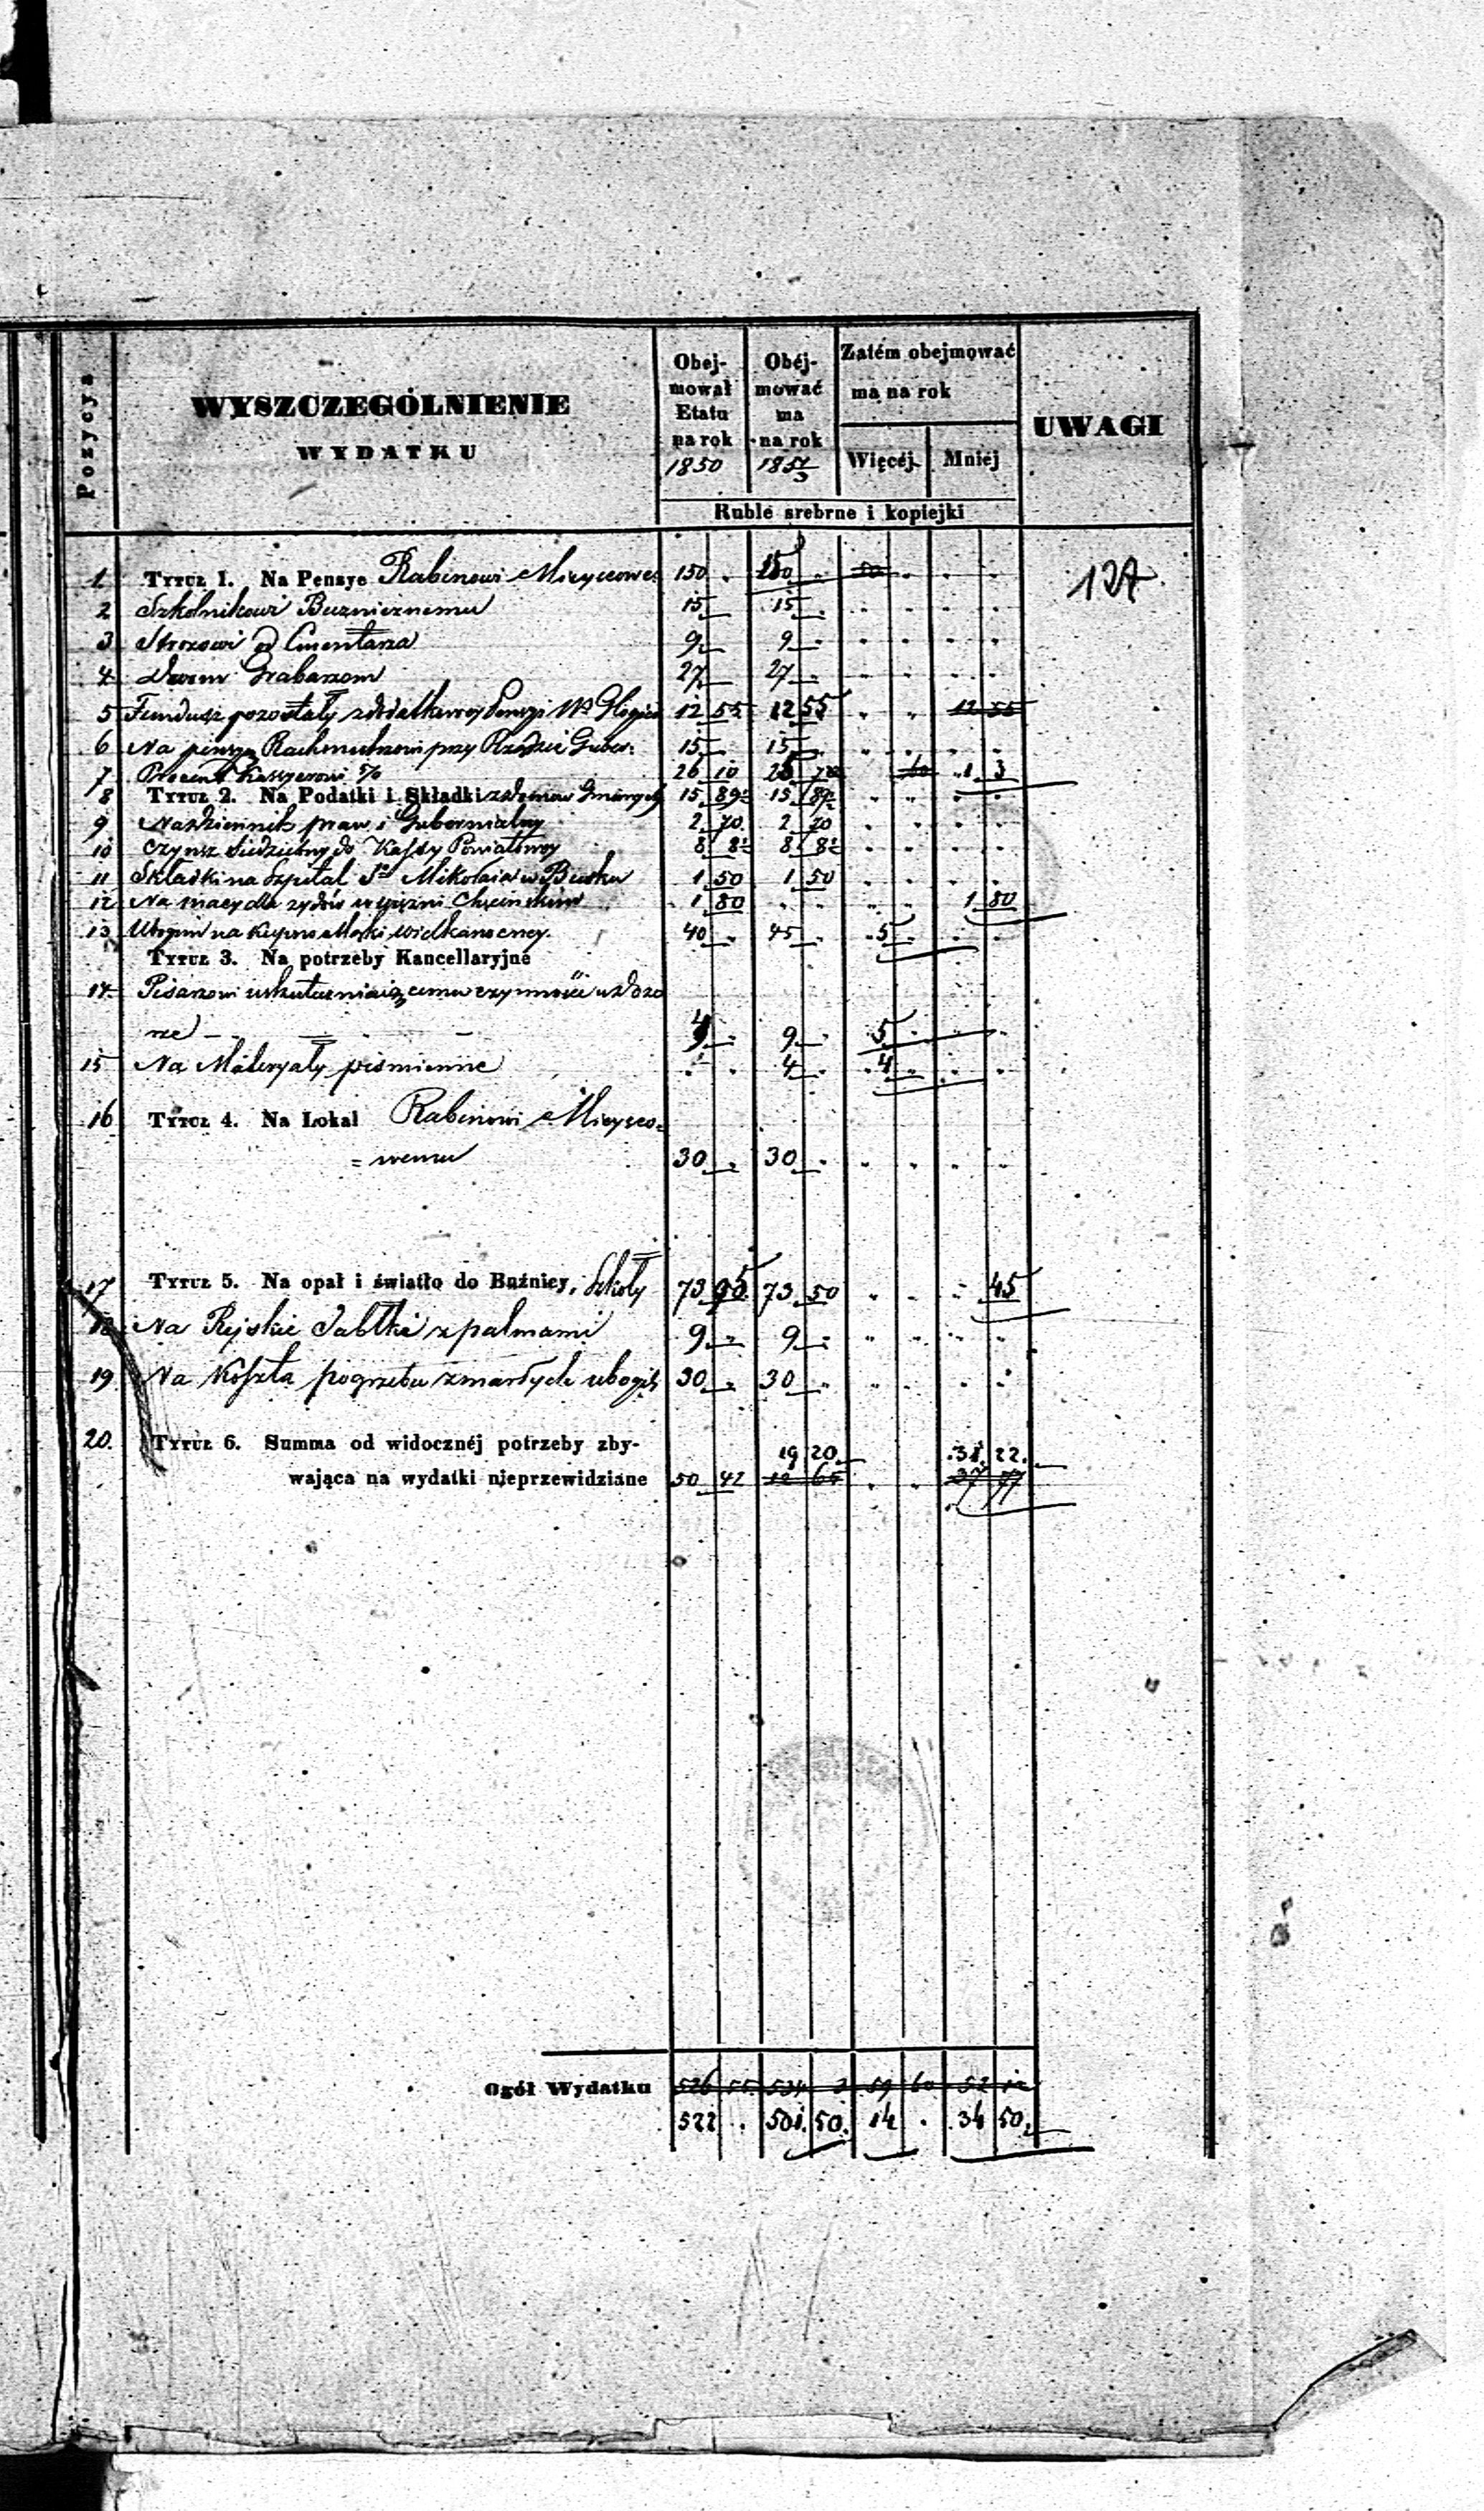 Pozycya
WYSZCZEGÓLNIENIE
WYDATKU
Obej-
mował
Etatu
na rok
1850
Obéj-
mować
ma
na rok
185
Zatém obejmować
ma na rok
Więcéj
Mniej
UWAGI
Ruble srebrne i kopiejki
127
1 Tytuł 1. Na Pensye Rabinowi Mieyscowe 150 " 150 " 50 " " "
2 Szkolnikowi Buznicznemu 15 15 " " " "
3 Strozowi od Cmentarza 9 9 " " " " "
4 dwom Grabarzom 27 27 " " " " "
5 Fundusz pozostały z dodatkowey Pensyi 12 55 12 55 " " 12 55
6 Na pensyą Rachmistrzowi przy Rządzie Guber: 15 15 " " " "
7 Procent Kassyerowi 26 10 25 60 1 3
8 Tytuł 2. Na Podatki i Składki z domów Gminnych 15 89 15 89 " " " "
9 Na dziennik praw i Gubernialny 2 70 2 70 " " " "
10 Czynsz do Kassy Powiatowey 8 8 8 8 " " " "
11 Składki na Szpital Sgo Mikołaia w Busku 1 50 1 50 " " " "
12 Na macy dla żydów więzni Chęcinskim 1 80 " " " " 1 80
13 Ubogim na kupno Mąki wielkanocney. 40 " 45 " 5 " " "
Tytuł 3. Na potrzeby Kancellaryjne
14 Pisarzowi uskuteczniaiącemu czynności w dozo
rze 4 " 9 5 " " "
15 Na Materyały piśmienne " " 4 4 " " "
16 Tytuł 4. Na Lokal Rabinowi Mieysco=
= wemu 30 " 30 " " " " "
17 Tytuł 5. Na opał i światło do Buźnicy, Szkoły 73 95 73 50 " " " 45
18 Na Rajskie Jabłka z palmami 9 " 9 " " " " "
19 Na Koszta pogrzebu zmarłych ubogich 30 " 30 " " " " "
20. Tytuł 6. Summa od widocznéj potrzeby zby-
19 20 31 22
wająca na wydatki nieprzewidziane 50 42 12 65 " " 37 77
Ogół Wydatku 526 55 534 3 59 60 52 12
522 . 501 50. 14 . 34 50.